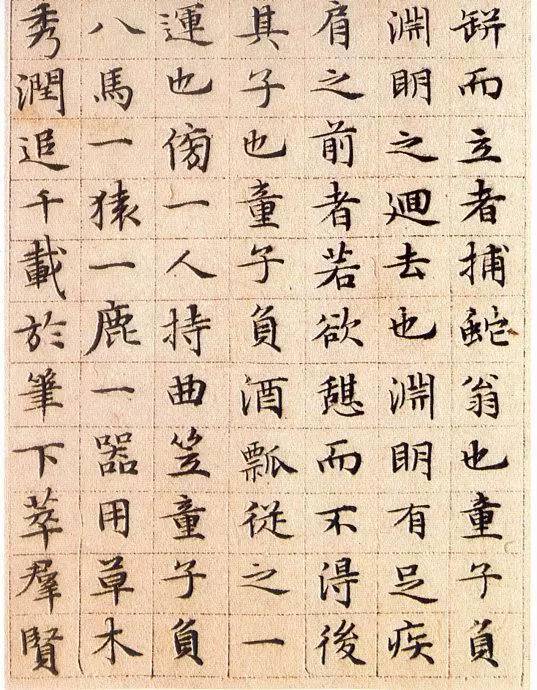 缾而立者捕蛇翁也童子負
淵明之迴去也淵明有足疾
肩之前者若欲憇而不得後
其子也童子負酒瓢従之一
運也傍一人持曲笠童子負
八馬一猿一鹿一器用草木
秀潤追千載於筆下萃羣賢